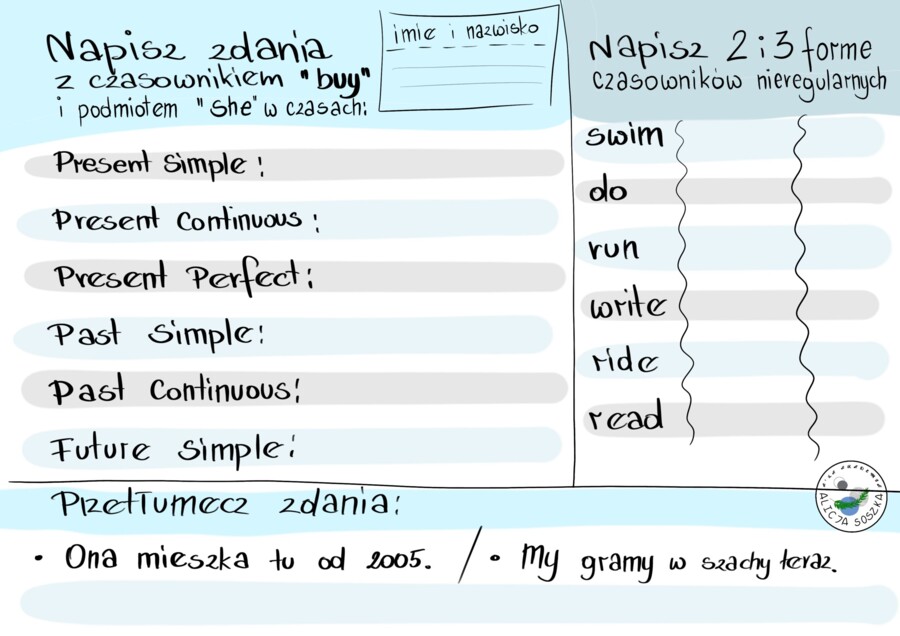 Napisz zdania
z czasownikiem "buy"
i podmiotem "she" w czasach:
imię i nazwisko
Present Simple:
Present Continuous:
Present Perfect:
Past Simple:
Past Continuous:
Future Simple:
Napisz 2 i 3 forme
czasowników nieregularnych
swim
do
run
write
ride
read
Przetłumecz zdania:
• Ona mieszka tu od 2005. / • My gramy w szachy teraz.
ALICJA SOSZKA